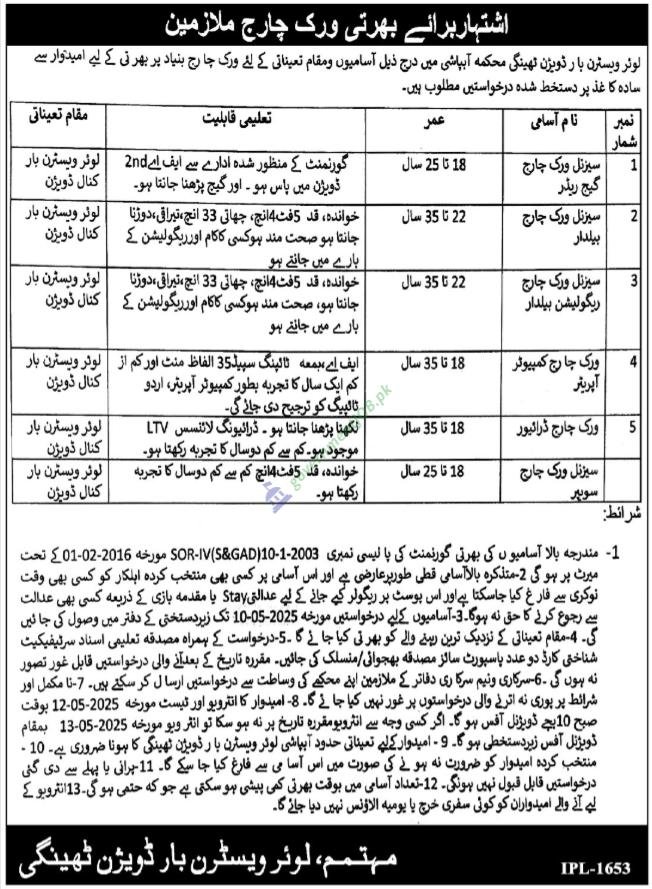 اشتہار برائے بھرتی ورک چارج ملازمین
لوئر ویسٹرن بار ڈویژن ٹھینگی محکمہ آبپاشی میں درج ذیل آسامیوں و مقام تعیناتی کے لئے ورک چارج بنیاد پر بھرتی کے لیے امیدوار سے
سادہ کاغذ پر دستخط شدہ درخواستیں مطلوب ہیں۔
نمبر شمار	نام آسامی	عمر	تعلیمی قابلیت	مقام تعیناتی
1	سیزنل ورک چارج	18 تا 25 سال	گورنمنٹ کے منظور شدہ ادارے سے ایف اے 2nd	لوئر ویسٹرن بار
گیج ریڈر	ڈویژن میں پاس ہو ۔ اور گیج پڑھنا جانتا ہو۔	کنال ڈویژن
2	سیزنل ورک چارج	22 تا 35 سال	خواندہ، قد 5فٹ4انچ، چھاتی 33 انچ،تیراقی،دوڑنا	لوئر ویسٹرن بار
بیلدار	جانتا ہو صحت مند ہوکسی کاکام اورریگولیشن کے	کنال ڈویژن
بارے میں جانتے ہو
3	سیزنل ورک چارج	22 تا 35 سال	خواندہ، قد 5فٹ4انچ، چھاتی 33 انچ،تیراقی،دوڑنا	لوئر ویسٹرن بار
ریگولیشن بیلدار	جانتا ہو، صحت مند ہوکسی کاکام اورریگولیشن کے	کنال ڈویژن
بارے میں جانتے ہو
4	ورک چارج کمپیوٹر	18 تا 35 سال	ایف اے،بمعہ ٹائپنگ سپیڈ35 الفاظ منٹ اور کم از	لوئر ویسٹرن بار
آپریٹر	کم ایک سال کا تجربہ بطور کمپیوٹر آپریٹر، اردو	کنال ڈویژن
ٹائپیگ کو ترجیح دی جائے گی۔
5	ورک چارج ڈرائیور	18 تا 35 سال	لکھنا پڑھنا جانتا ہو ۔ ڈرائیونگ لائنسس LTV	لوئر ویسٹرن بار
موجود ہو۔ کم سے کم دوسال کا تجربہ رکھتا ہو۔	کنال ڈویژن
سیزنل ورک چارج	18 تا 25 سال	خواندہ، قد 5فٹ4انچ کم سے کم دوسال کا تجربہ	لوئر ویسٹرن بار
سویپر	رکھتا ہو۔	کنال ڈویژن
governmentJOB.pk
شرائط:
1- مندرجہ بالا آسامیوں کی بھرتی گورنمنٹ کی پالیسی نمبری SOR-IV(S&GAD)10-1-2003 مورخہ 01-02-2016 کے تحت
میرٹ پر ہو گی 2-متذکرہ بالاآسامی قطی طورپرعارضی ہے اور اس آسامی پر کسی بھی منتخب کردہ اہلکار کو کسی بھی وقت
نوکری سے فارغ کیا جاسکتا ہے اور اس پوسٹ پر ریگولر کیے جانے کے لیے عدالتی Stay یا مقدمہ بازی کے ذریعہ کسی بھی عدالت
سے رجوع کرنے کا حق نہ ہوگا۔3-آسامیوں کےلیے درخواستیں مورخہ 10-05-2025 تک زیردستخطی کے دفتر میں وصول کی جائیں
گی۔ 4-مقام تعیناتی کے نزدیک ترین رہنے والے کو بھرتی کیا جائے گا ۔5-درخواست کے ہمراہ مصدقہ تعلیمی اسناد سرٹیفیکیٹ
شناختی کارڈ دو عدد پاسپورٹ سائز مصدقہ بھجوائی/منسلک کی جائیں۔ مقررہ تاریخ کے بعدآنے والی درخواستیں قابل غور تصور
نہ ہوں گی ۔6-سرکاری ونیم سرکاری دفاتر کے ملازمین اپنے محکمے کی وساطت سے درخواستیں ارسال کر سکتے ہیں۔ 7-نا مکمل اور
شرائط پر پوری نہ اترنے والی درخواستوں پر غور نہیں کیا جائے گا۔ 8- امیدوار کا انٹرویو اور ٹیسٹ مورخہ 12-05-2025 بوقت
صبح 10بجے ڈویژنل آفس ہو گا۔ اگر کسی وجہ سے انٹرویومقررہ تاریخ پر نہ ہو سکا تو انٹرویو مورخہ 13-05-2025 بمقام
ڈویژنل آفس زیردستخطی ہو گا۔ 9- امیدوار کےلیے تعیناتی حدود آبپاشی لوئر ویسٹرن بار ڈویژن ٹھینگی کا ہونا ضروری ہے۔ 10-
منتخب کردہ امیدوار کو ضرورت نہ ہونے کی صورت میں اس آسامی سے فارغ کیا جا سکے گا۔ 11-پرانی یا پہلے سے دی گئی
درخواستیں قابل قبول نہیں ہونگی۔ 12-تعداد آسامی میں بوقت بھرتی کمی پیشی ہو سکتی ہے جو کہ حتمی ہو گی۔13انٹرویو کے
لیے آنے والے امیدواران کو کوئی سفری خرچ یا یومیہ الاؤنس نہیں دیا جائے گا۔
مہتمم، لوئر ویسٹرن بار ڈویژن ٹھینگی
IPL-1653